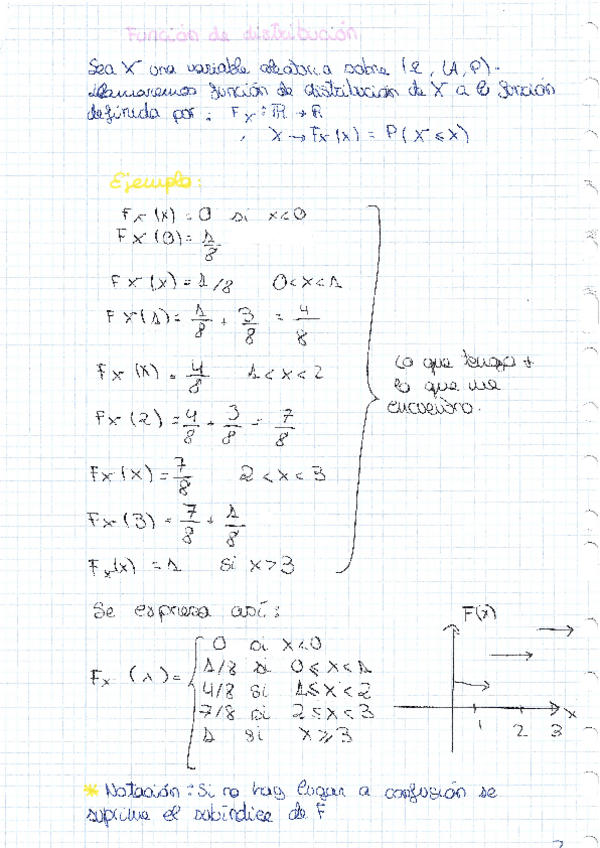 Función de distribución
Sea X una variable aleatoria sobre (Ω, A, P).
Llamaremos función de distribución de X a la función
definida por: Fx: ℝ → ℝ
x → Fx(x) = P(X ≤ x)
Ejemplo:
Fx(x) = 0 si x<0
Fx(0) = 1/8
Fx(x) = 1/8 0<x<1
Fx(1) = 1/8 + 3/8 = 4/8
Fx(x) = 4/8 1<x<2
lo que tengo +
lo que me
encuentro.
Fx(2) = 4/8 + 3/8 = 7/8
Fx(x) = 7/8 2<x<3
Fx(3) = 7/8 + 1/8
Fx(x) = 1 si x>3
Se expresa así:
F(x)
Fx(x) =
0 si x<0
1/8 si 0≤x<1
4/8 si 1≤x<2
7/8 si 2≤x<3
1 si x≥3
1 2 3 x
* Notación: Si no hay lugar a confusión se
suprime el subíndice de F